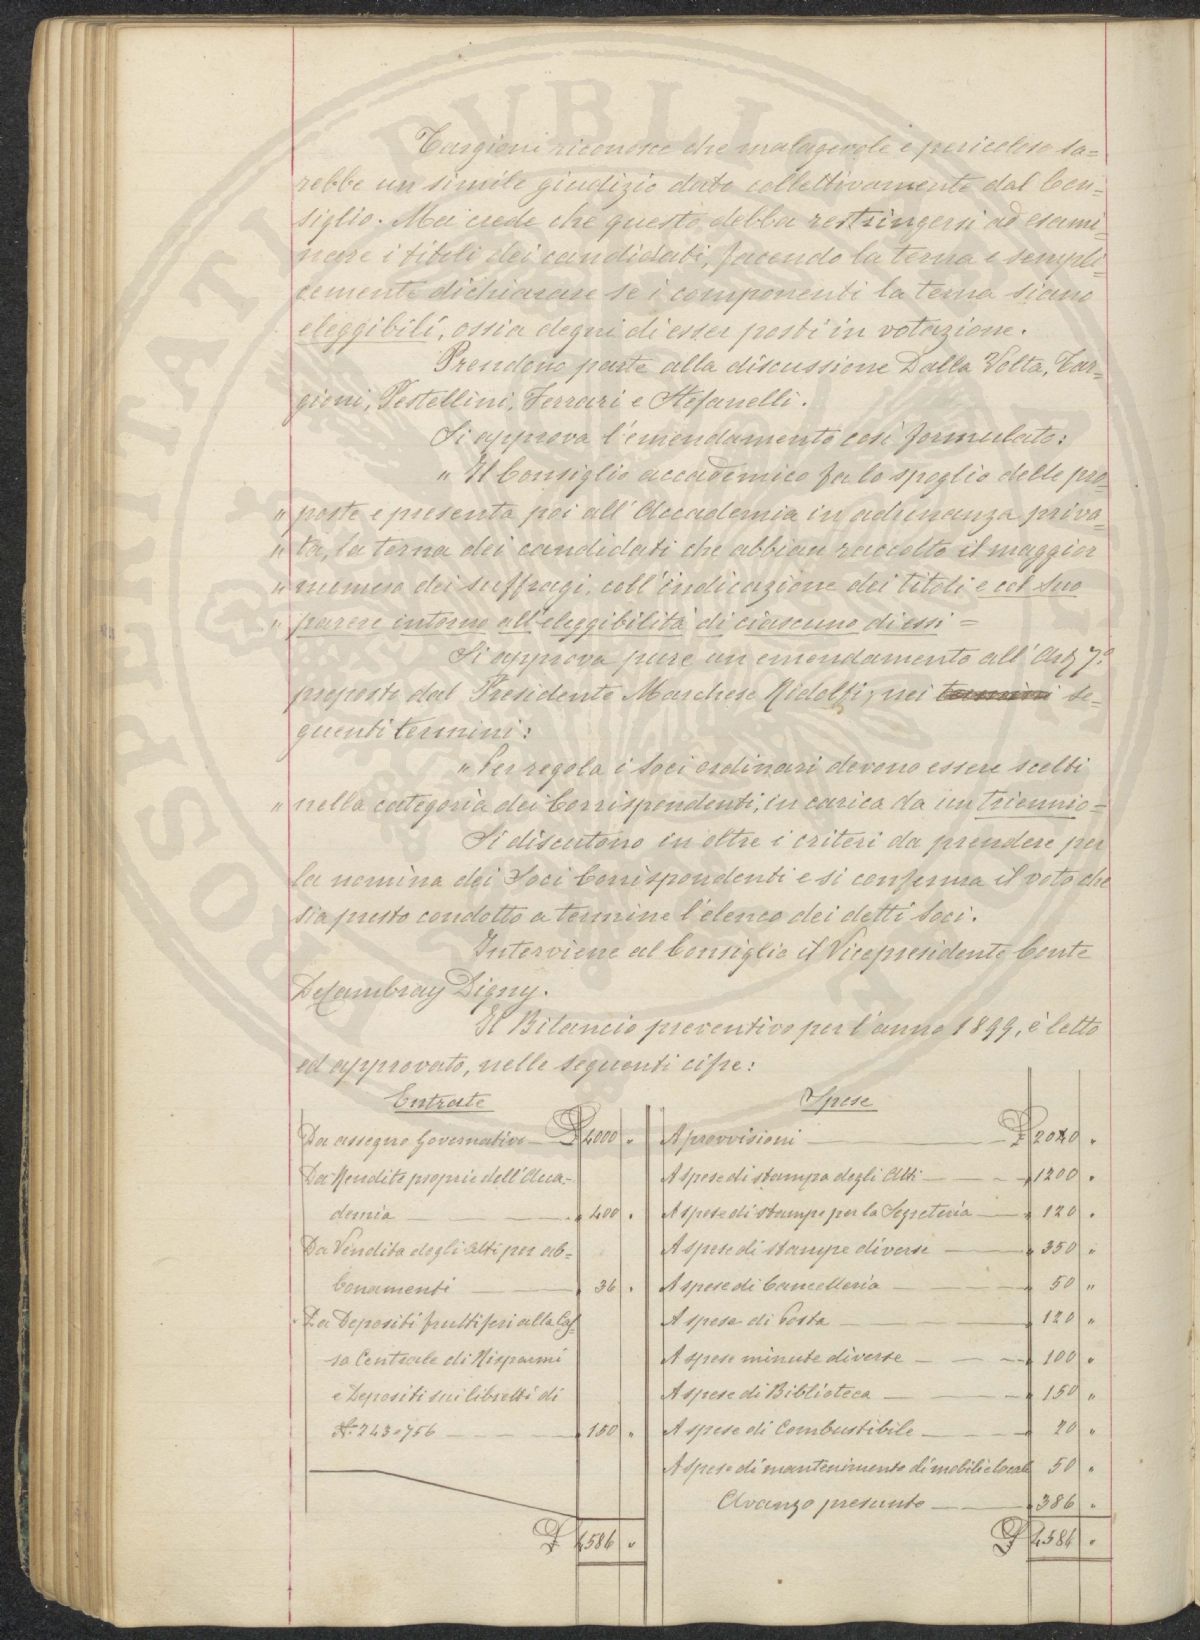 Targioni riconosce che malagevole e pericoloso sa=
rebbe un simile giudizio dato collettivamente dal Con=
siglio. Ma crede che questo debba restringersi ad esami=
nare i titoli dei candidati, facendo la terna e sempli=
cemente dichiarare se i componenti la terna siano
eleggibili, ossia degni di esser posti in votazione.
Prendono parte alla discussione Dalla Volta, Tar=
gioni, Pestellini, Ferrari e Stefanelli.
Si approva l'emendamento così formulato:
" Il Consiglio accademico fa lo spoglio delle pro=
" poste e presenta poi all'Accademia in adunanza priva=
" ta, la terna dei candidati che abbian raccolto il maggior
" numero dei suffragi, coll'indicazione dei titoli e col suo
" parere intorno all'eleggibilità di ciascuno di essi =
Si approva pure un emendamento all'Art. 7.o
proposto dal Presidente Marchese Ridolfi, nei termini se=
guenti termini:
" Per regola i Soci ordinari devono essere scelti
" nella categoria dei Corrispondenti, in carica da un triennio=
Si discutono in oltre i criteri da prendere per
la nomina dei Soci Corrispondenti e si conferma il voto che
sia presto condotto a termine l'elenco dei detti Soci.
Interviene al Consiglio il Vicepresidente Conte
De Cambray Digny.
Il Bilancio preventivo per l'anno 1899, è letto
ed approvato, nelle seguenti cifre:
Entrate
Da assegno Governativo — £ 4000 "
Da Rendite proprie dell'Acca-
demia — " 400 "
Da Vendita degli Atti per ab=
bonamenti — " 36 "
Da Depositi fruttiferi alla Cas=
sa Centrale di Risparmi
e Depositi sui libretti di
N. 243 e 756 — " 150 "
£ 4586 "
Spese
A provvisioni — £ 2040 "
A spese di stampa degli Atti — " 1200 "
A spese di stampe per la Segreteria — " 120 "
A spese di stampe diverse — " 350 "
A spese di Cancelleria — " 50 "
A spese di Posta — " 120 "
A spese minute diverse — " 100 "
A spese di Biblioteca — " 150 "
A spese di Combustibile — " 20 "
A spese di mantenimento di mobili e locale 50 "
Avanzo presunto — " 386 "
£ 4586 "
PROSPERITATI PVBLICAE